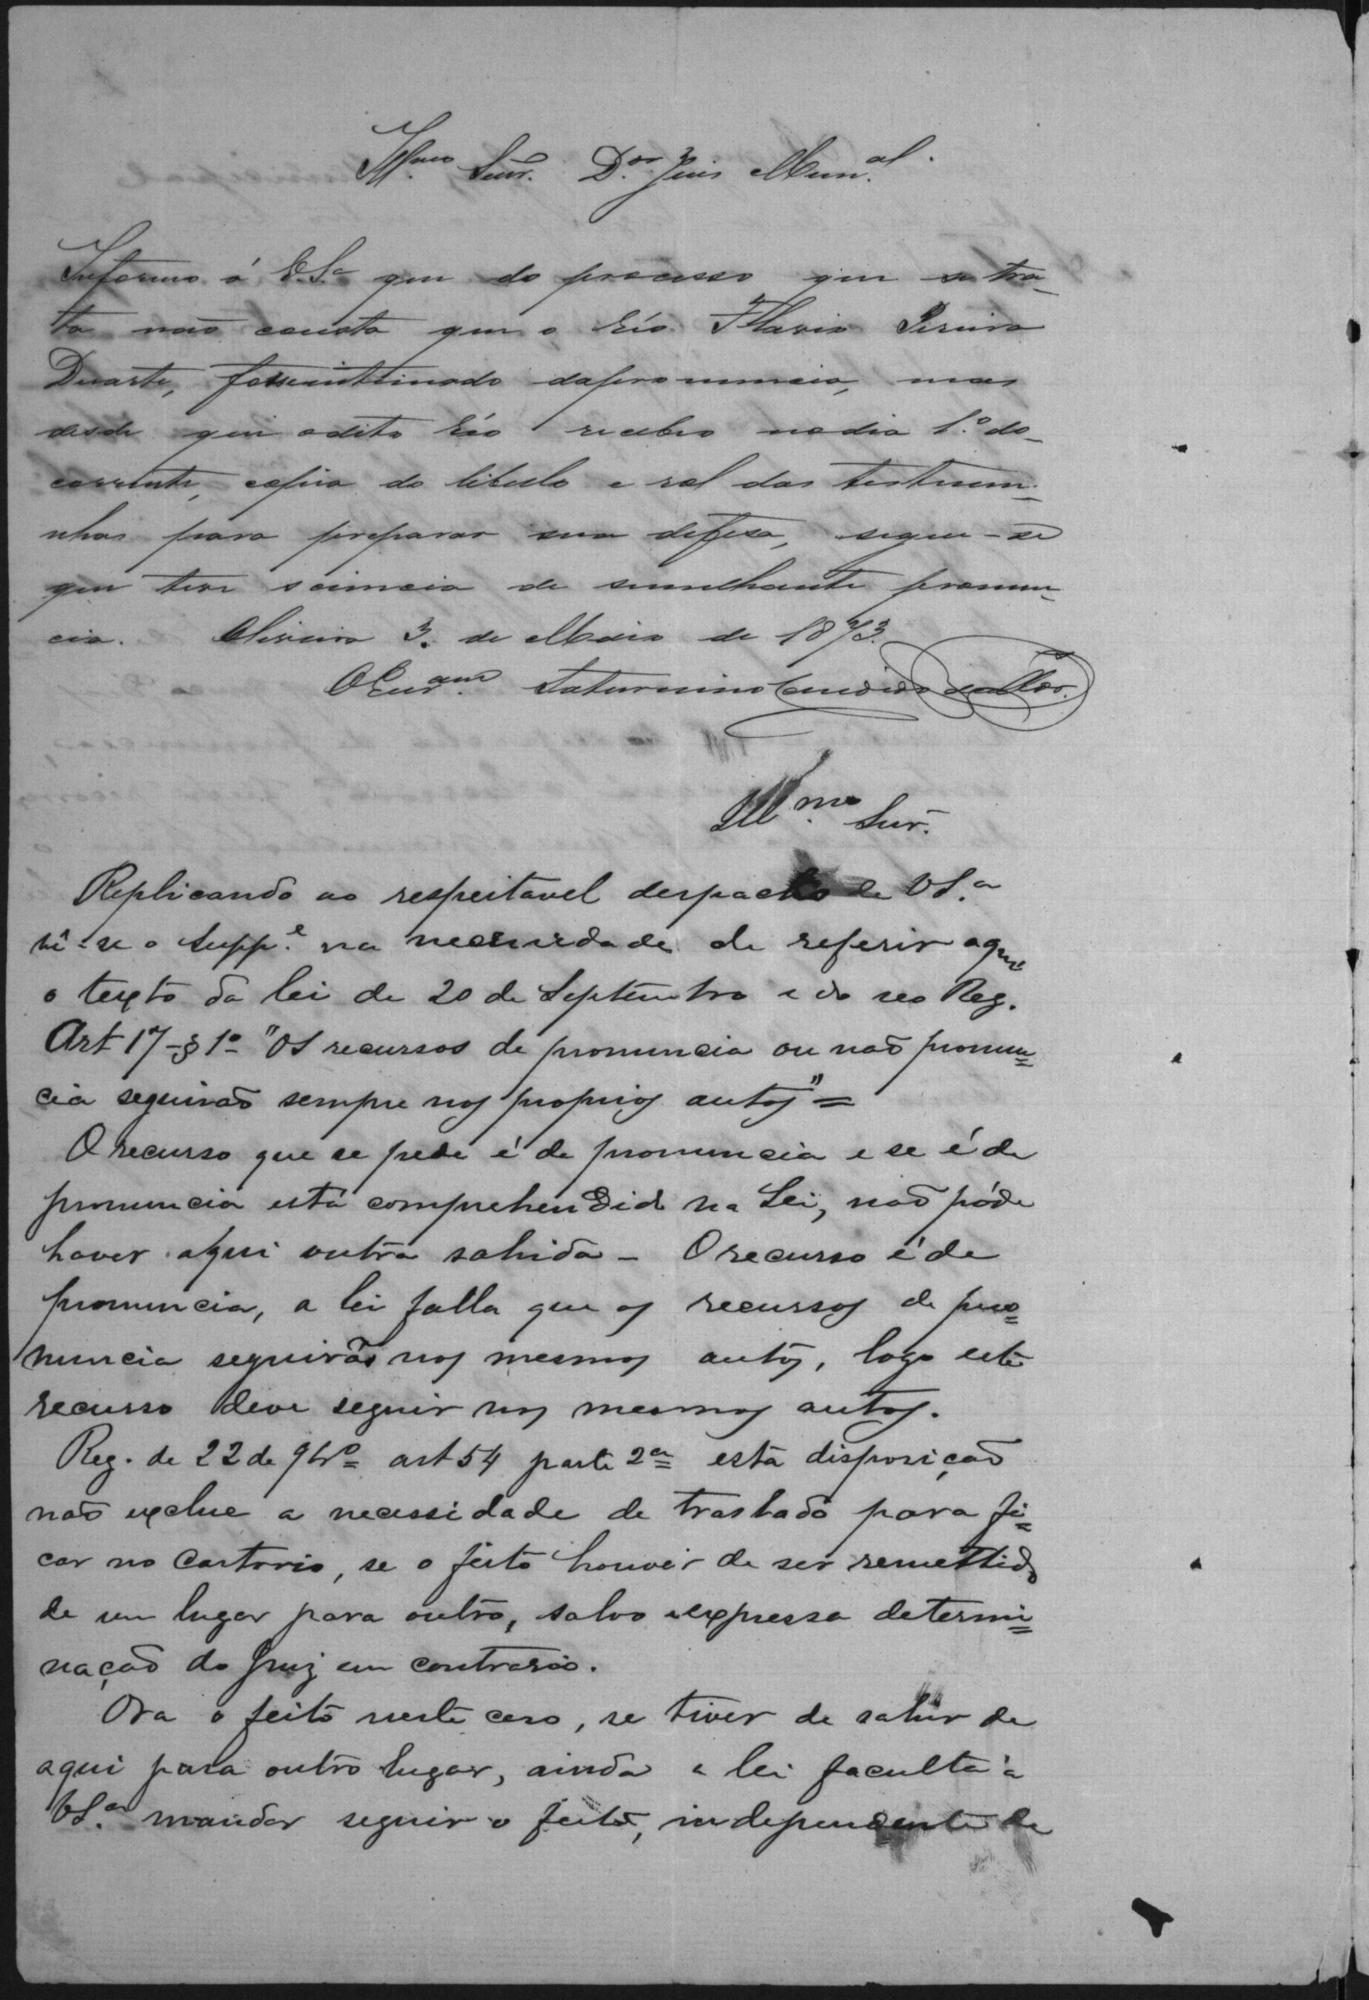 Ill.mo Snr. D.or Juis Mun.al.
Informo á V.S.a que do processo que se tra-
ta não consta que o Réo Flavio Pereira
Duarte, fosse intimado da pronuncia, mas
desde que o dito Réo recebeo no dia 1.º do
corrente, copia do libello e rol das testemu-
nhas para preparar sua defesa, segue-se
que teve sciencia de semelhante pronun-
cia. Oliveira 3. de Maio de 1873.
O Escr.am Saturnino Candido da
Ill.mo Snr.
Replicando ao respeitavel despacho de VS.a
vê-se o Supp.e na necessidade de referir aqui
o texto da lei de 20 de Septembro e do seo Reg.
Art 17-§ 1º "Os recursos de pronuncia ou não pronun=
cia seguirão sempre nos proprios autos"=
O recurso que se pede é de pronuncia e se é de
pronuncia está comprehendido na Lei, não póde
haver aqui outra sahida - O recurso é de
pronuncia, a lei falla que os recursos de pro=
nuncia seguirão nos mesmos autos, logo este
recurso deve seguir nos mesmos autos.
Reg. de 22 de 9br.o art 54 parte 2a esta disposição
não exclue a necessidade de traslado para fi=
car no Cartorio, se o feito houver de ser remettido
de um lugar para outro, salvo expressa determi=
nação do Juiz em contrario.
Ora o feito neste caso, se tiver de sahir de
aqui para outro lugar, ainda a lei faculta á
VS.a mandar seguir o feito, independente de